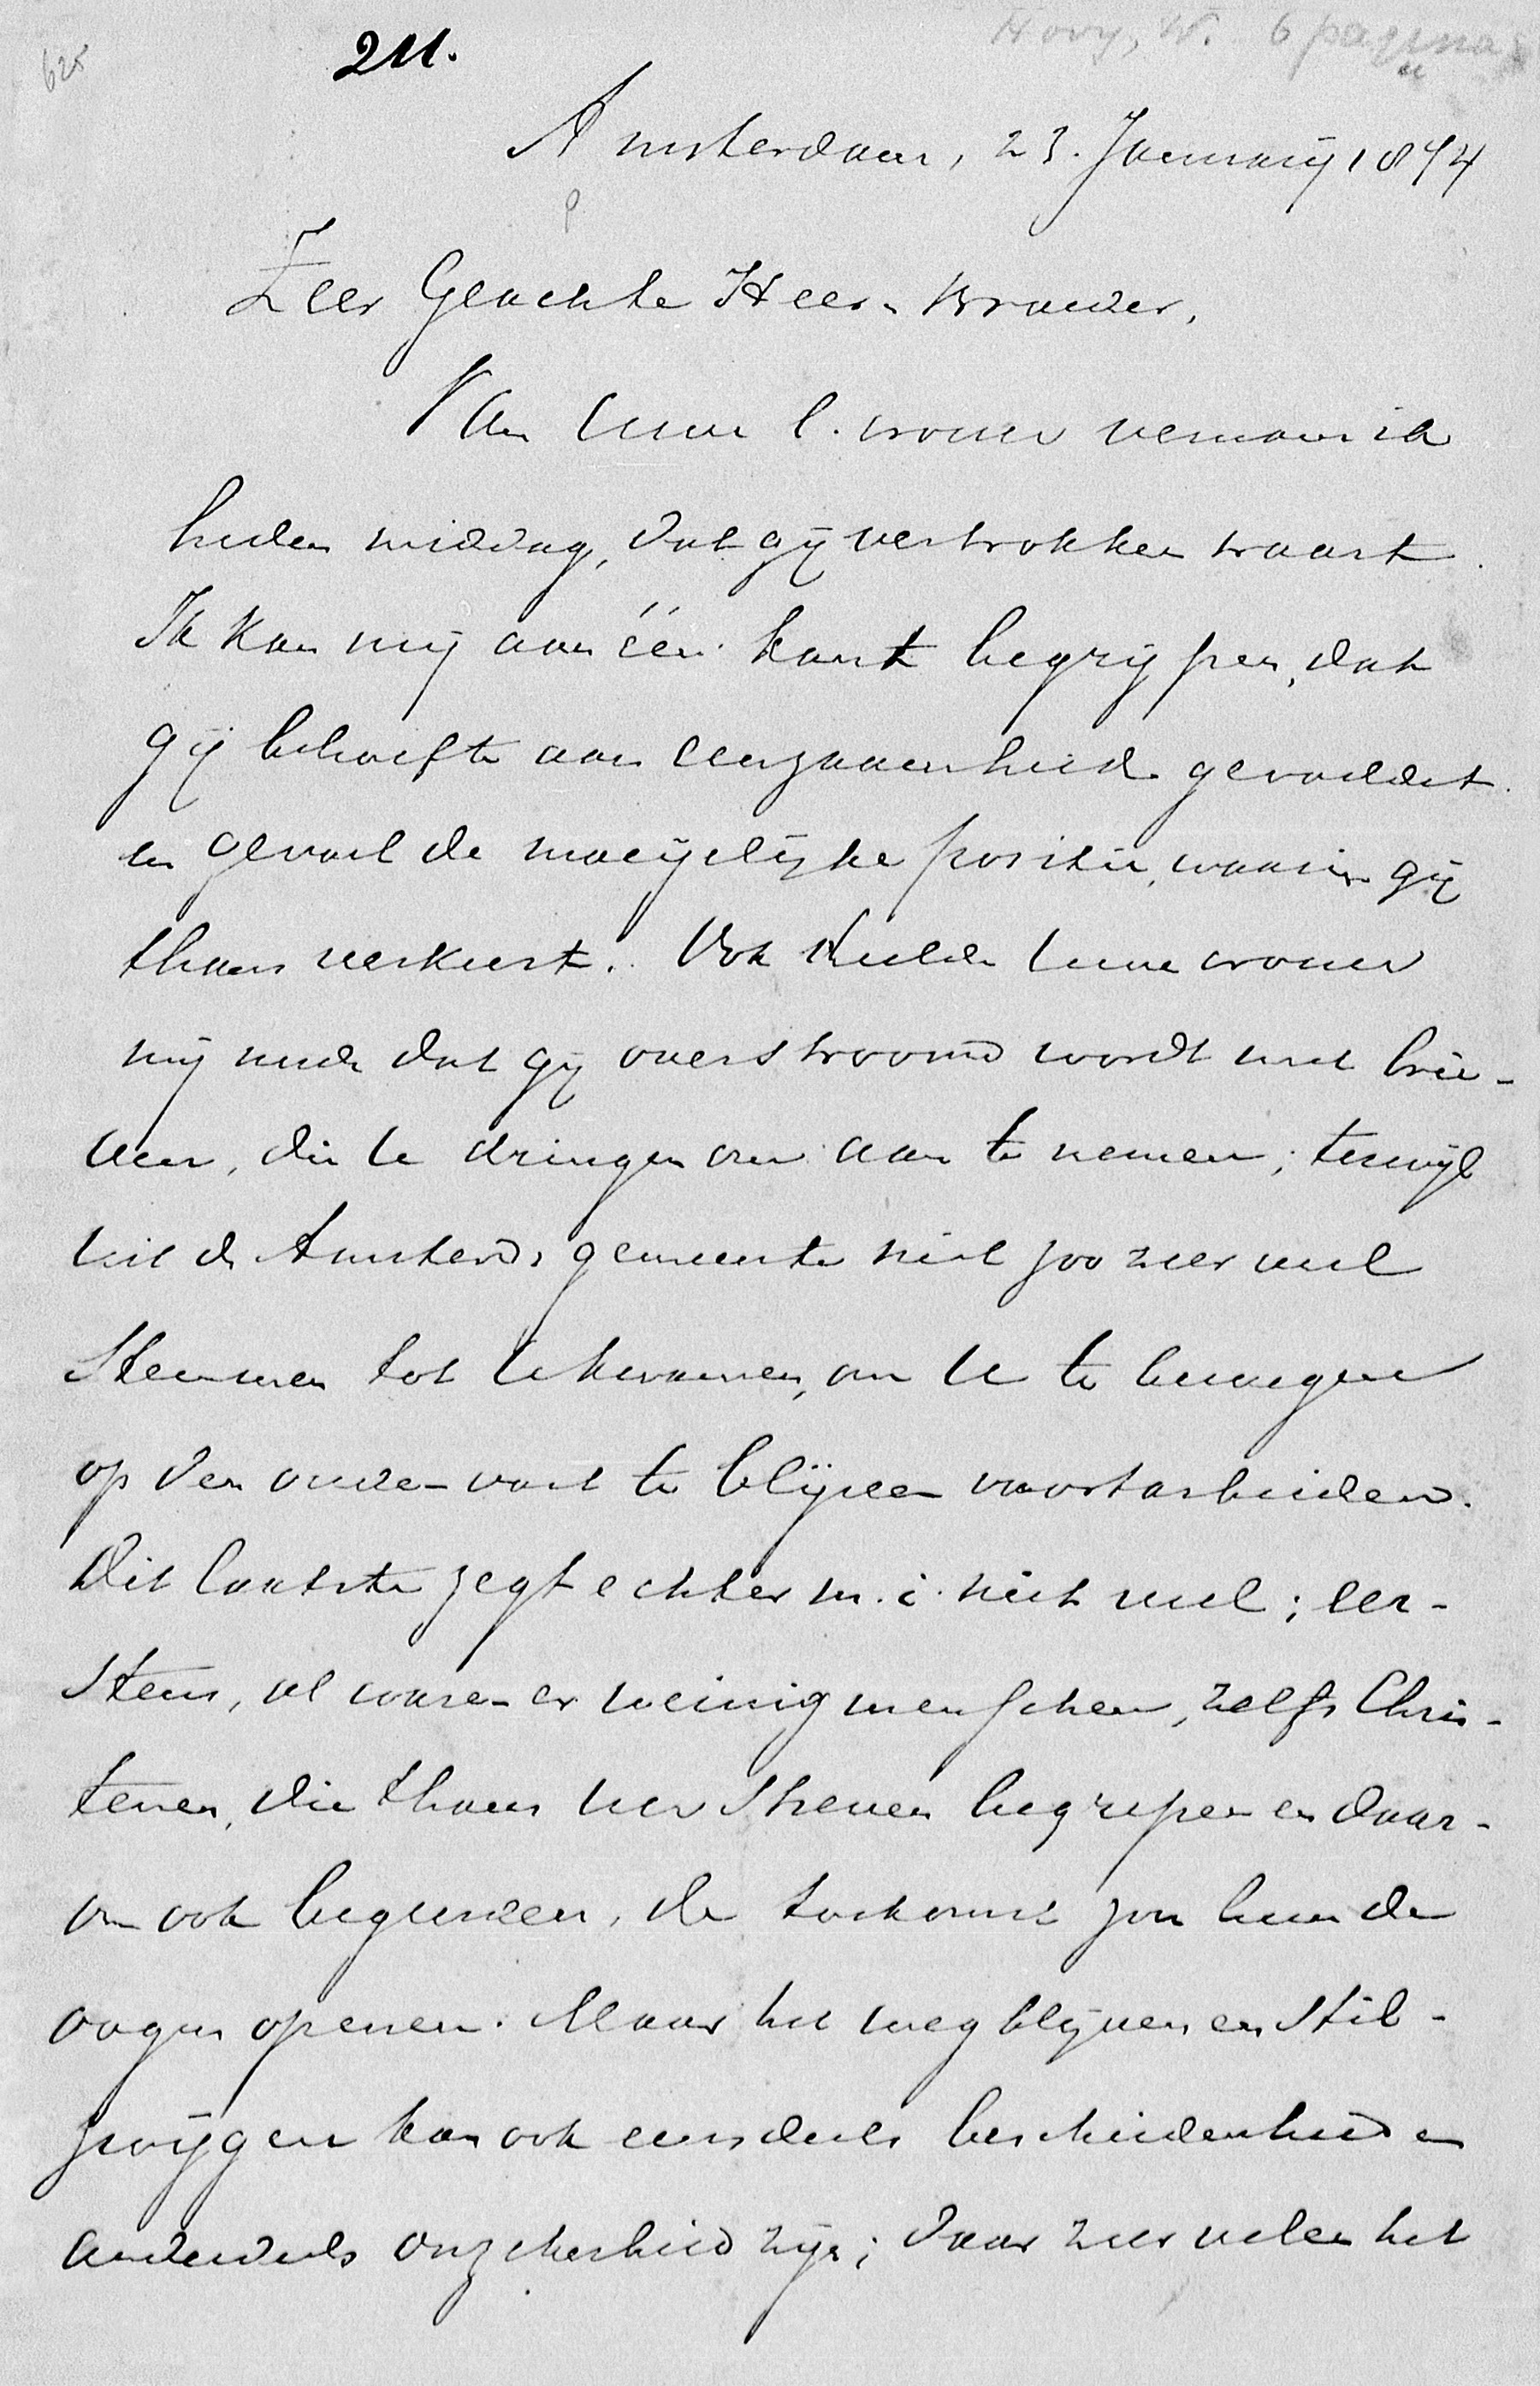 625
211.
Hovy, W. 6 pagina's
Amsterdam, 23. January 1874
Zeer Geachte Heer & Broeder,
Van Uwe l. vrouw vernam ik
heden middag, dat gij vertrokken waart.
Ik kan mij aan één kant begrijpen, dat
gij behoefte aan eenzaamheid gevoeldet.
en gevoel de moeijelijke positie, waarin gij
thans verkeert. Ook deelde Uwe vrouw
mij mede dat gij overstroomd wordt met brie-
ven, die U dringen om aan te nemen; terwijl
uit de Amsterd. gemeente niet zoo zeer veel
stemmen tot U kwamen, om U te bewegen
op den ouden voet te blijven voortarbeiden.
Dit laatste zegt echter m. i. niet veel; eer-
stens, al waren er weinig menschen, zelfs Chris-
tenen, die thans Uw streven begrepen en daar-
om ook begeerden, de toekomst zou hun de
oogen openen. Maar het wegblijven en stil-
zwijgen kan ook eensdeels bescheidenheid en
anderdeels onzekerheid zijn; daar zeer velen het